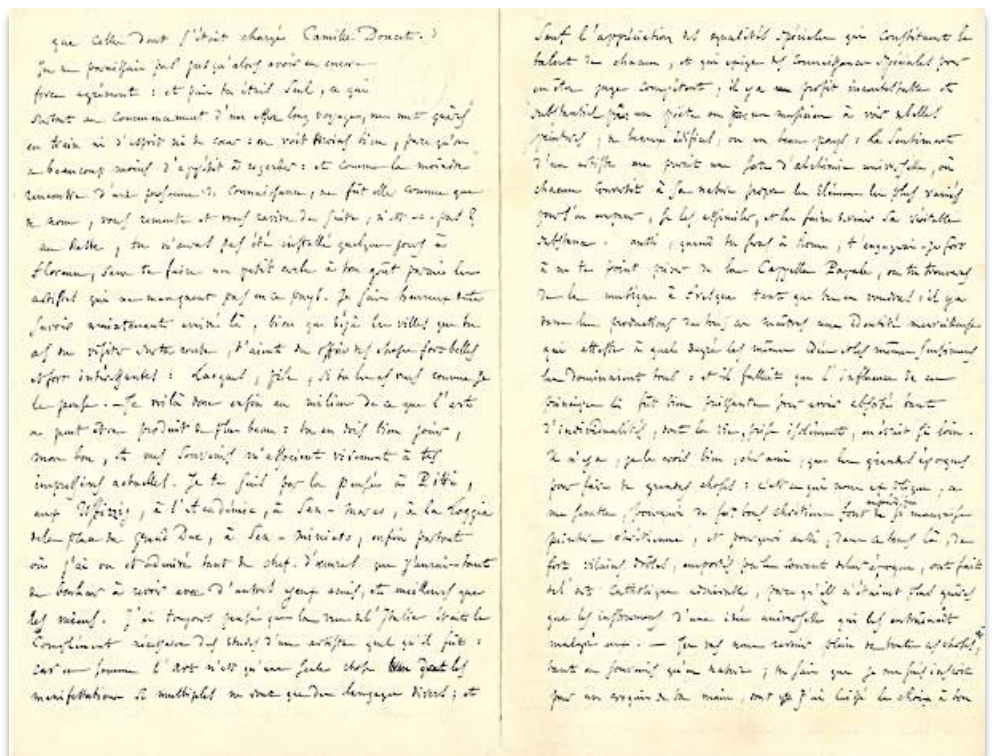 que celle dont s'était chargé Camille Doucet.
Je ne paraissais pas jusqu'alors avoir eu encore
force agrément : et puis tu étais seul, ce qui
surtout au commencement d'un voyage, ne met guères
en train ni d'esprit ni de cœur : on voit moins bien, parce qu'on
a beaucoup moins d'appétit à regarder : et comme la moindre
rencontre d'une personne de connaissance, ne fût elle connue que
de nom, vous remonte et vous ravive de suite, n'est-ce pas ?
au reste, tu n'auras pas été installé quelques jours à
Florence, sans te faire un petit cercle à ton goût parmi les
artistes qui ne manquent pas en ce pays. Je suis heureux de te
savoir maintenant arrivé là, bien que déjà les villes que tu
as du visiter sur ta route, t'aient du offrir des choses fort belles
et fort intéressantes : Lucques, Pise, si tu les as vues comme je
le pense. — Te voilà donc enfin au milieu de ce que l'art
a peut être produit de plus beau : tu en dois bien jouir,
mon bon, et mes souvenirs s'associent vivement à tes
impressions actuelles. Je te suis par la pensée à Pitti,
aux Uffizzi, à l'Académie, à San-Marco, à la Loggia
de la place du Grand Duc, à San-Miniato, enfin partout
où j'ai vu et admiré tant de chefs-d'œuvres que j'aurais tant
de bonheur à revoir avec d'autres yeux amis, et meilleurs que
les miens. J'ai toujours pensé que la vue de l'Italie était le
complément nécessaire des études d'un artiste quel qu'il fût :
car en somme l'art n'est qu'une seule chose dont les
manifestations si multiples ne sont que des langages divers ; et
Sauf l'appréciation des qualités spéciales qui constituent le
talent de chacun, et qui exige des connaissances spéciales pour
en être juge compétent, il y a un profit incontestable et
substantiel pour un poète ou un musicien à voir de belles
peintures, de beaux édifices, ou un beau pays : le sentiment
d'un artiste me paraît une sorte d'alchimie universelle, où
chacun convertit à sa nature propre les éléments les plus variés
pour s'en emparer, se les assimiler, et en faire devenir sa véritable
substance. aussi, quand tu seras à Rome, t'engagerai-je fort
à ne te point priver de la Cappella Papale, où tu trouveras
de la musique à fresque tant que tu en voudras : il y a
dans les productions de tous ces maîtres une identité merveilleuse
qui atteste à quel degré les mêmes idées et les mêmes sentiments
les dominaient tous : et il fallait que l'influence de ce
principe là fût bien puissante pour avoir absorbé tant
d'individualités, dont la vie, prise isolément, en était si loin.
Il n'y a, je le crois bien, cher ami, que les grandes époques
pour faire de grandes choses : c'est ce qui nous explique, ce
me semble, pourquoi de fort bons chrétiens font de si mauvaise
peinture chrétienne, et pourquoi aussi, dans ce tems là, de
fort vilains drôles, emportés par le courant de leur époque, ont fait
de l'art catholique admirable, parce qu'ils n'étaient plus guères
que les instruments d'une idée universelle qui les entraînait
malgré eux. — Tu vas nous revenir plein de toutes ces choses,
tant en souvenirs qu'en nature ; tu sais que je me suis inscrit
pour un croquis de ta main, dont j'ai laissé le choix à ton